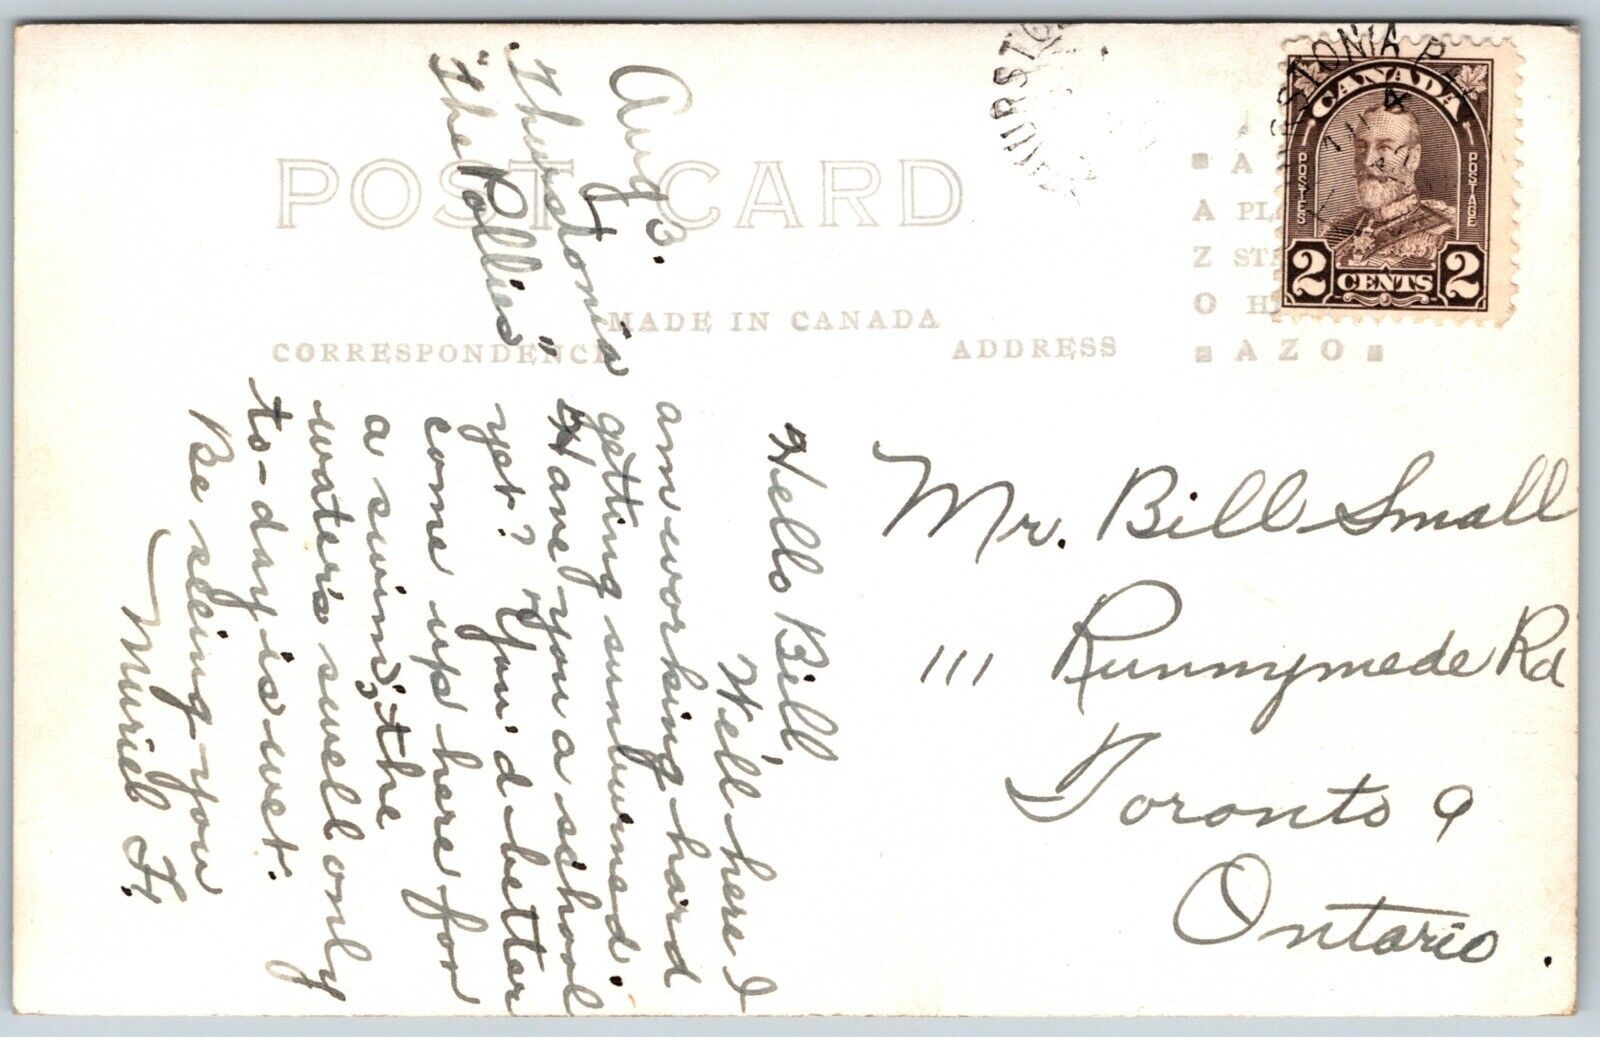 POST CARD
MADE IN CANADA
CORRESPONDENCE
ADDRESS
AZO
CANADA
POSTES
POSTAGE
2 CENTS 2
"The Pollies"
Thurstonia
Aug 3.
Hello Bill
We'll here I
am working hard
getting sunburned.
Have you a school
yet? You'd better
come up here for
a swim, the
water's swell only
to-day is wet.
Be seeing you
Muriel F.
Mr. Bill Small
111 Runnymede Rd
Toronto 9
Ontario.